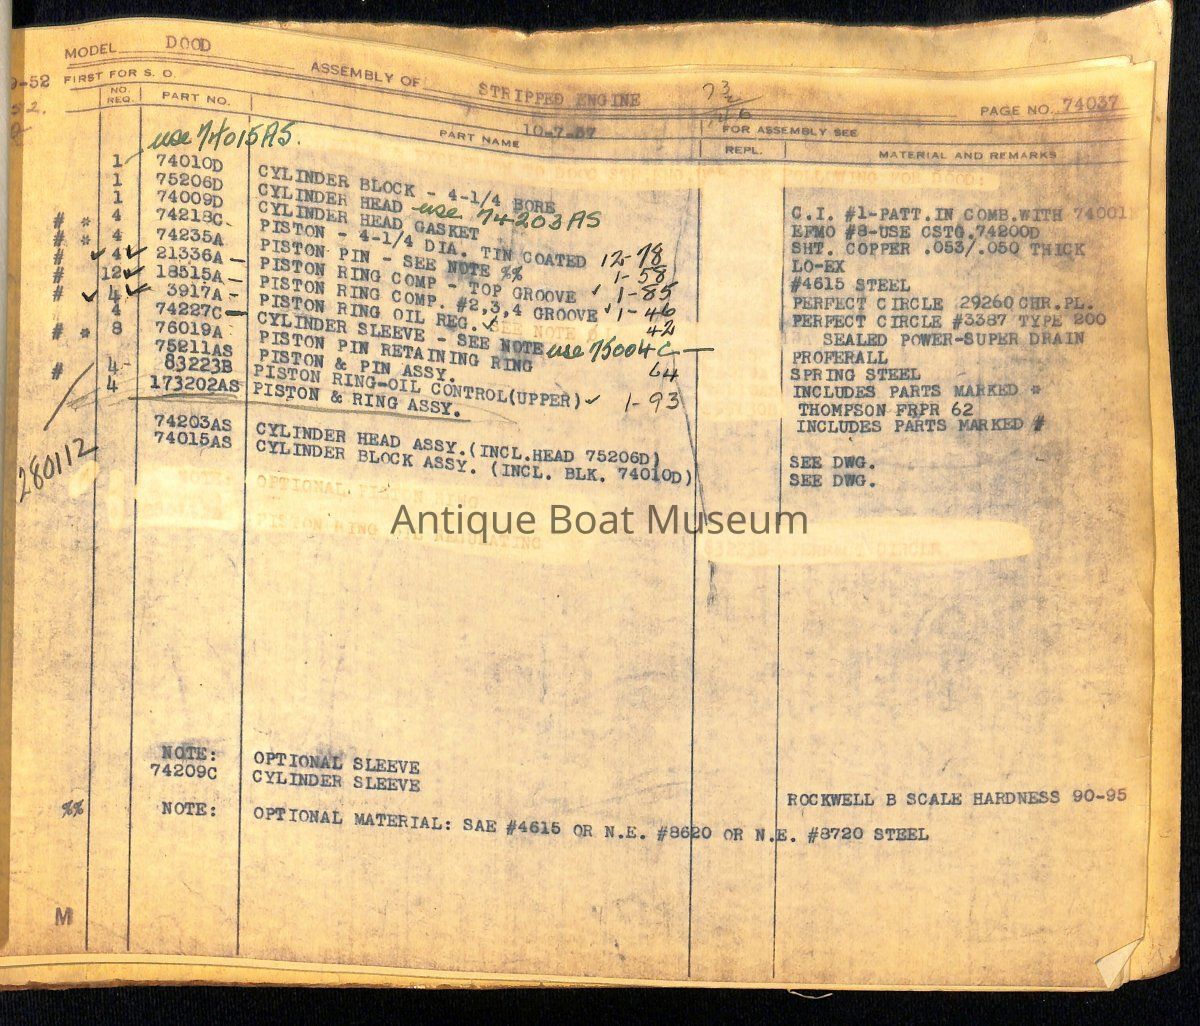 MODEL DOOD
9-52 FIRST FOR S. O. ASSEMBLY OF STRIPPED ENGINE PAGE NO. 74037
NO. REQ. PART NO. PART NAME 10-7-57 FOR ASSEMBLY SEE
REPL. MATERIAL AND REMARKS
use 74015AS.
1 74010D CYLINDER BLOCK - 4-1/4 BORE C.I. #1-PATT.IN COMB.WITH 74001
1 75206D CYLINDER HEAD use 74203AS EFMO #8-USE CSTG.74200D
1 74009D CYLINDER HEAD GASKET SHT. COPPER .053/.050 THICK
# * 4 74218C PISTON - 4-1/4 DIA. TIN COATED 12-78 LO-EX
# * 4 74235A PISTON PIN - SEE NOTE %% 1-58 #4615 STEEL
# ✓ 4 ✓ 21336A PISTON RING COMP - TOP GROOVE ✓ 1-85 PERFECT CIRCLE 29260 CHR.PL.
# 12 ✓ 18515A PISTON RING COMP. #2,3,4 GROOVE ✓ 1-46 PERFECT CIRCLE #3387 TYPE 200
# ✓ 4 ✓ 3917A PISTON RING OIL REG. ✓ 42 SEALED POWER-SUPER DRAIN
4 74227C CYLINDER SLEEVE - SEE NOTE use 75004C PROFERALL
# * 8 76019A PISTON PIN RETAINING RING 64 SPRING STEEL
75211AS PISTON & PIN ASSY. INCLUDES PARTS MARKED *
# 4 83223B PISTON RING-OIL CONTROL(UPPER) ✓ 1-93 THOMPSON FRPR 62
4 173202AS PISTON & RING ASSY. INCLUDES PARTS MARKED #
74203AS CYLINDER HEAD ASSY.(INCL.HEAD 75206D) SEE DWG.
74015AS CYLINDER BLOCK ASSY. (INCL. BLK. 74010D) SEE DWG.
280112
OPTIONAL PISTON RING
PISTON RING OIL REGULATING
Antique Boat Museum
NOTE: OPTIONAL SLEEVE
74209C CYLINDER SLEEVE ROCKWELL B SCALE HARDNESS 90-95
%% NOTE: OPTIONAL MATERIAL: SAE #4615 OR N.E. #8620 OR N.E. #8720 STEEL
M